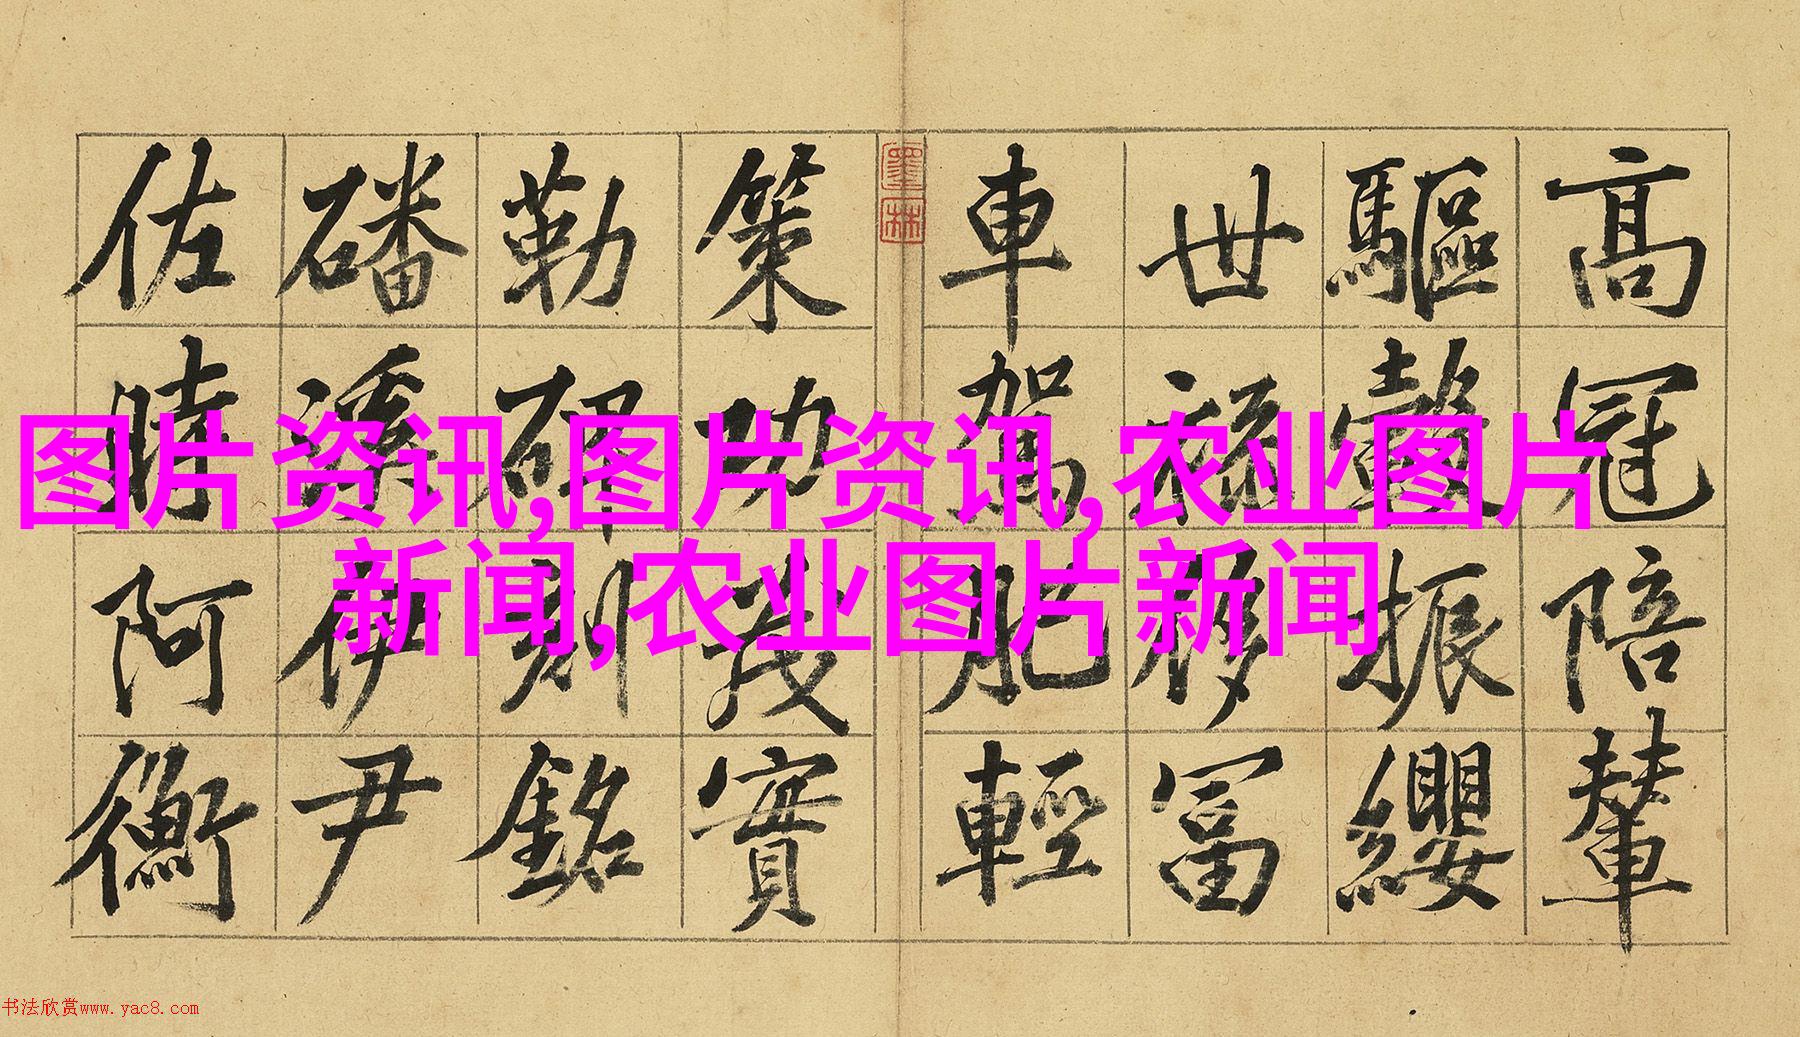 高冠陪輦
驅轂振纓
世祿侈富
車駕肥輕
墨林
策功茂實
勒碑刻銘
磻溪伊尹
佐時阿衡
图片资讯,图片资讯,农业图片
新闻,农业图片新闻
书法欣赏www.yac8.com